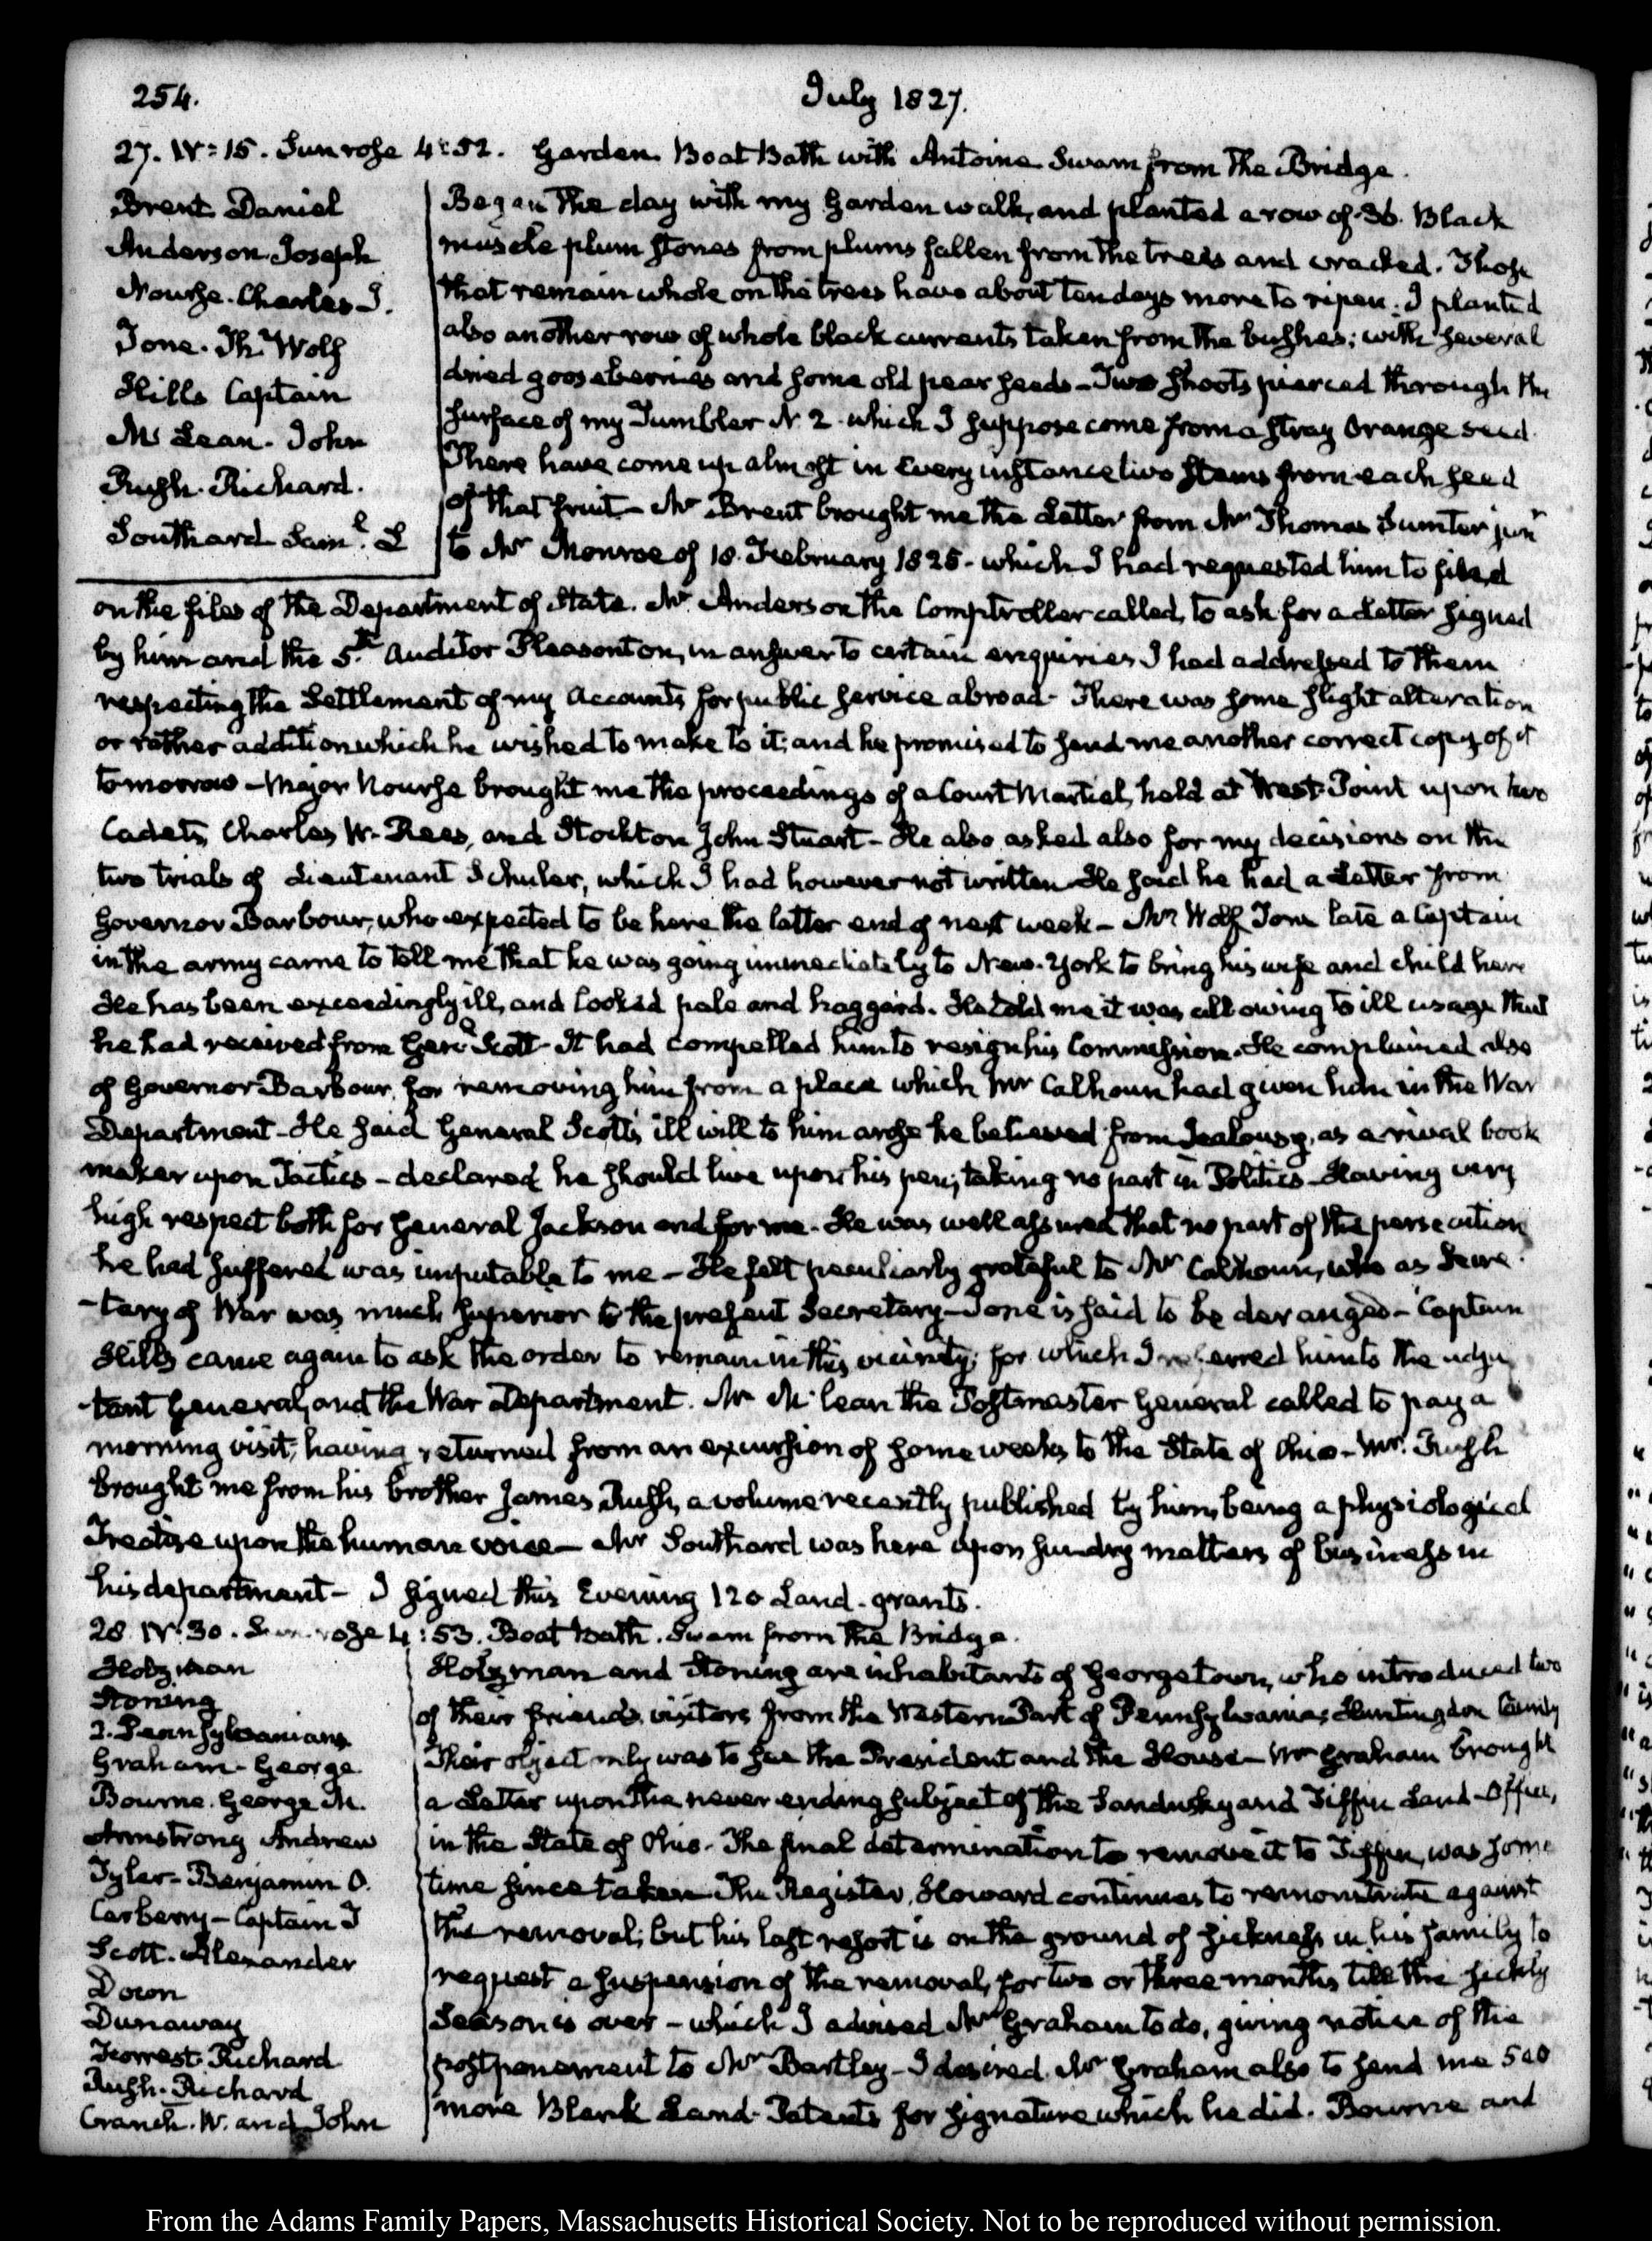 254.
July 1827.
27. IV:15. Sun rose 4:52. Garden. Boat Bath with Antoine Swam from the Bridge.
Brent Daniel
Anderson. Joseph
Nourse. Charles J.
Tone. Th. Wolf
Hills Captain
Mc Lean. John
Rush. Richard.
Southard Saml. L
Began the day with my Garden walk, and planted a row of 36. Black
muscle plum stones from plums fallen from the trees and cracked. Those
that remain whole on the trees have about ten days more to ripen. I planted
also another row of whole black currents taken from the bushes; with several
dried gooseberries and some old pear seeds - Two shoots pierced through the
surface of my Tumbler N. 2. which I suppose come from a stray Orange seed.
There have come up almost in every instance two stems from each seed
of that fruit - Mr Brent brought me the Letter from Mr Thomas Sumter junr
to Mr Monroe of 18. February 1825 - which I had requested him to find
on the files of the Department of State. Mr. Anderson the Comptroller called, to ask for a Letter signed
by him and the 5th. Auditor Pleasonton, in answer to certain enquiries I had addressed to them
respecting the Settlement of my Accounts for public service abroad - There was some slight alteration
or rather addition which he wished to make to it; and he promised to send me another correct copy of it
tomorrow - Major Nourse brought me the proceedings of a Court Martial, held at West-Point upon two
Cadets, Charles W. Rees, and Stockton John Stuart - He also asked also for my decisions on the
two trials of Lieutenant Schuler, which I had however not written He said he had a Letter from
Governor Barbour, who expected to be here the latter end of next week - Mr Wolf Tone late a Captain
in the army came to tell me that he was going immediately to New-York to bring his wife and child here
He has been exceedingly ill, and looked pale and haggard. He told me it was all owing to ill usage that
he had received from Genl. Scott - It had compelled him to resign his Commission. He complained also
of Governor Barbour, for removing him from a place which Mr Calhoun had given him in the War
Department - He said General Scott's ill will to him arose he believed from Jealousy, as a rival book
maker upon Tactics - declared he should live upon his pen; taking no part in Politics - Having very
high respect both for General Jackson and for me. He was well assured that no part of the persecution
he had suffered was imputable to me - He felt peculiarly grateful to Mr Calhoun, who as Secre-
-tary of War was much superior to the present Secretary - Tone is said to be deranged - Captain
Hills came again to ask the order to remain in this vicinity; for which I referred him to the adju
-tant General, and the War Department. Mr McLean the Postmaster General called to pay a
morning visit; having returned from an excursion of some weeks to the State of Ohio - Mr. Rush
brought me from his brother James Rush, a volume recently published by him, being a physiological
Treatise upon the human voice - Mr Southard was here upon sundry matters of business in
his department - I signed this Evening 120 Land-grants.
28. IV:30. Sun rose 4:53. Boat bath. Swam from the Bridge.
Holtzman
Honing
2. Pennsylvanians
Graham - George
Bourne. George M.
Armstrong Andrew
Tyler - Benjamin O.
Carberry - Captain T
Scott. Alexander
Down
Dunaway
Forrest Richard
Rush. Richard
Cranch. W. and John
Holtzman and Honing are inhabitants of Georgetown, who introduced two
of their friends, visitors from the Western Part of Pennsylvania; Huntingdon County
Their object only was to see the President and the House - Mr Graham brought
a Letter upon the never ending subject of the Sandusky and Tiffin Land-Office,
in the State of Ohio. The final determination to remove it to Tiffin, was some
time since taken The Register, Howard continues to remonstrate against
the removal; but his last resort is on the ground of sickness in his family to
request a suspension of the removal, for two or three months, till the sickly
Season is over - which I advised Mr Graham to do, giving notice of the
postponement to Mr Bartley - I desired Mr Graham also to send me 500
more Blank Land-Patents for signature which he did. Bourne and
From the Adams Family Papers, Massachusetts Historical Society. Not to be reproduced without permission.